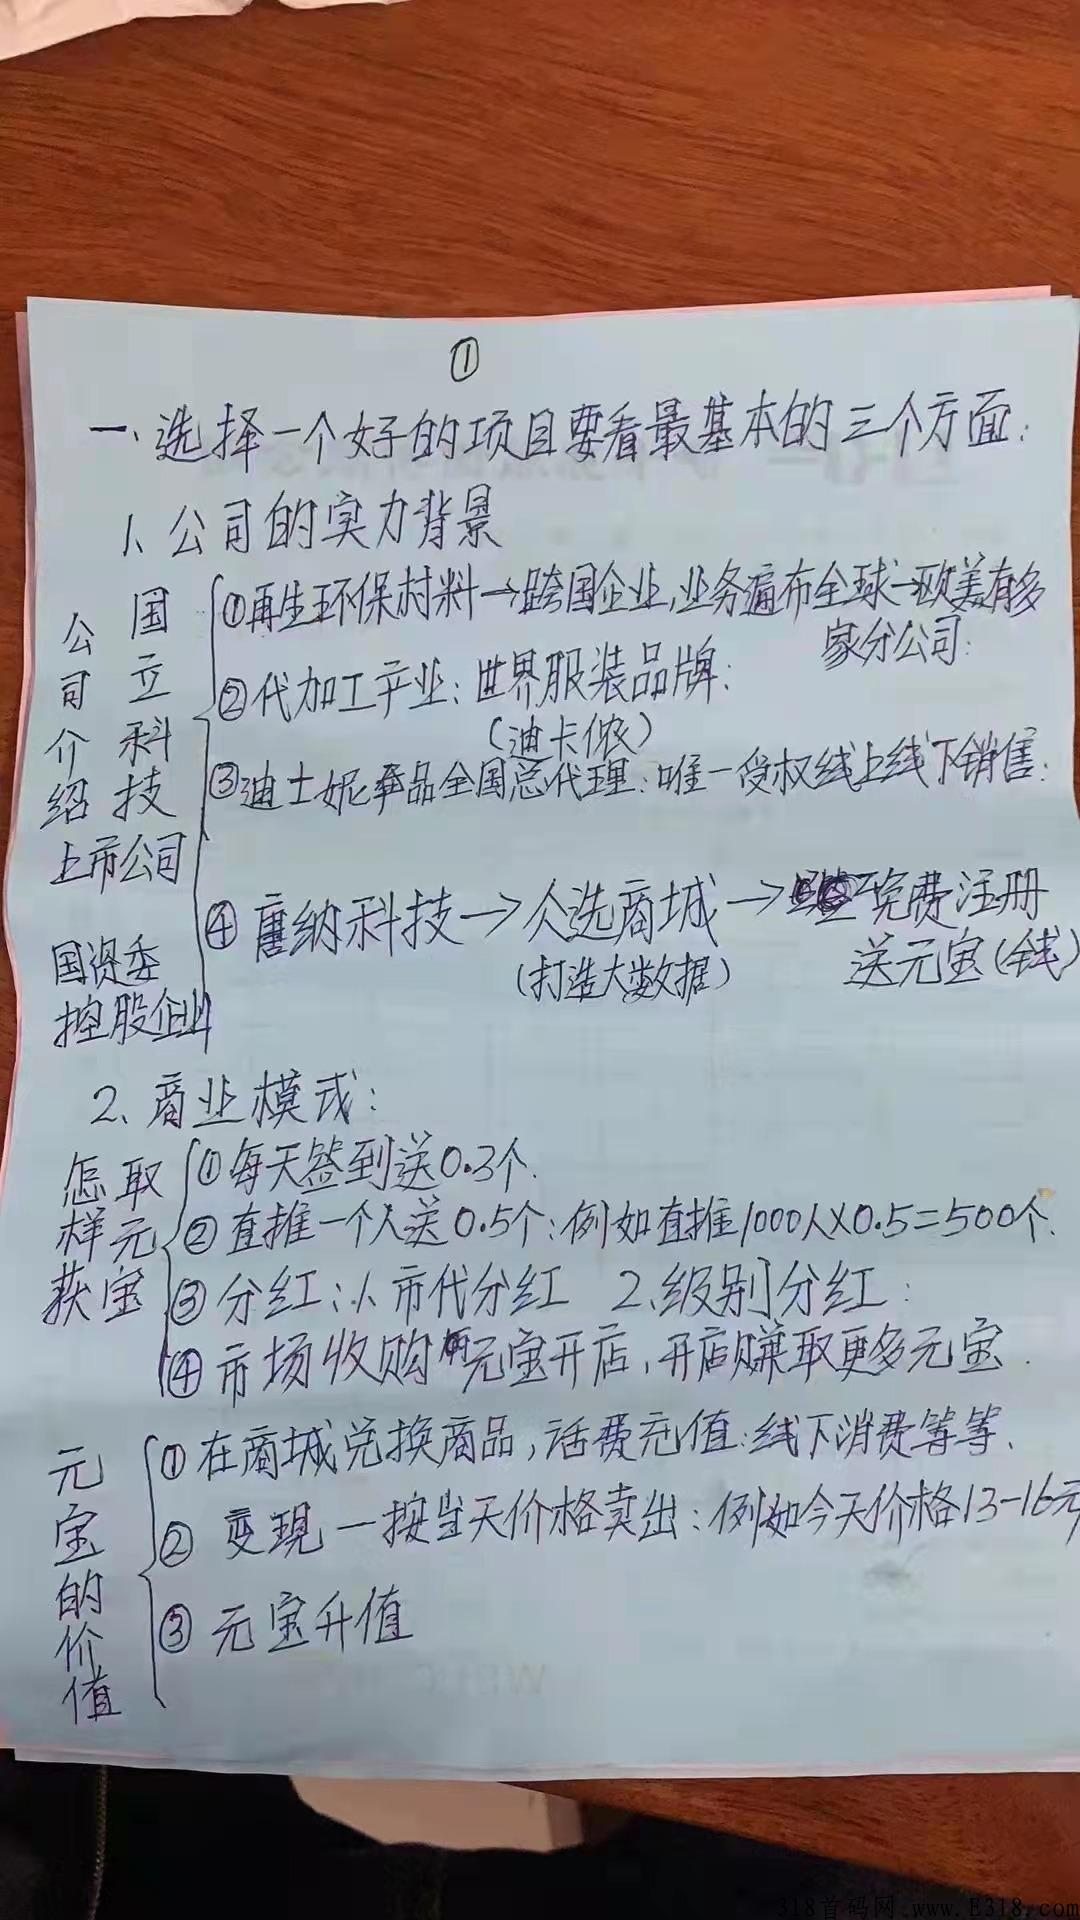 ①
一、选择一个好的项目要看最基本的三个方面:
1、公司的实力背景
公司介绍
国立科技
上市公司
国资委
控股企业
①再生环保材料→跨国企业,业务遍布全球→欧美有多
家分公司:
②代加工产业:世界服装品牌:
(迪卡侬)
③迪士妮 品全国总代理:唯一受权线上线下销售:
④唐纳科技→亼选商城→免费注册
(打造大数据)
送元宝(钱)
2、商业模式:
怎样获
取元宝
①每天签到送0.3个.
②直推一个人送0.5个:例如直推1000人X0.5=500个.
③分红:1、市代分红 2、级别分红:
④市场收购 元宝开店,开店赚取更多元宝.
元宝的价值
①在商城兑换商品,话费充值:线下消费等等.
②变现一按当天价格卖出:例如今天价格13-16元
③元宝升值
318首码网.www.E318.com